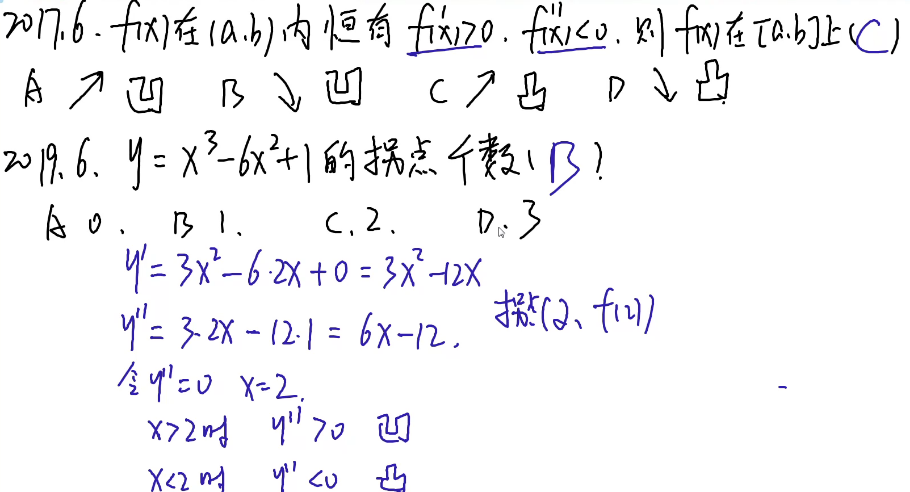 2017.6. f(x)在(a.b)内恒有 f'(x)>0. f''(x)<0. 则 f(x)在[a.b]上(C)
A ↗ 凹 B ↘ 凹 C ↗ 凸 D ↘ 凸
2019.6. y=x³-6x²+1的拐点个数(B)
A 0. B 1. C.2. D.3
y'=3x²-6·2x+0=3x²-12x
y''=3·2x-12·1=6x-12.
拐点(2、f(2))
令y''=0 x=2.
x>2时 y''>0 凹
x<2时 y''<0 凸